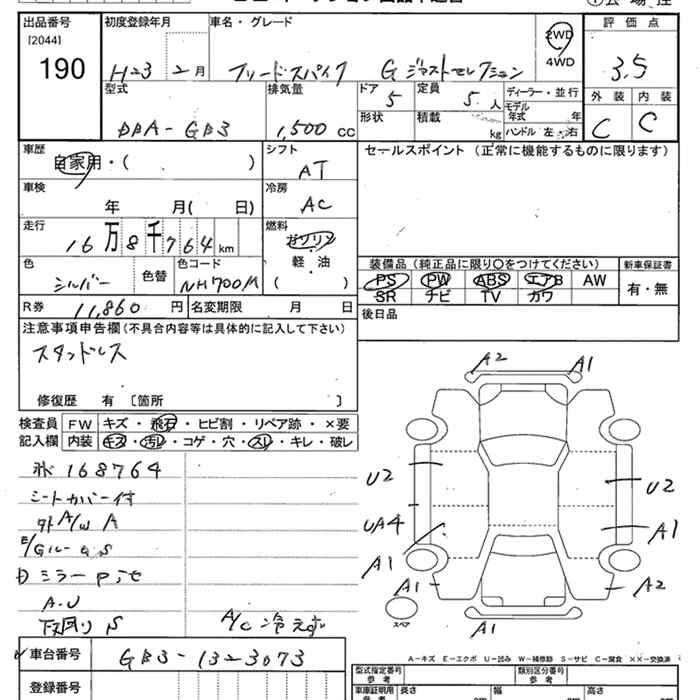 出品番号 [2044] 190
初度登録年月 H23 2 月
車名・グレード フリードスパイク G ジャストセレクション
2WD
4WD
評価点 3.5
外装 C 内装 C
型式 DBA-GB3
排気量 1,500 cc
ドア 5
定員 5 人
形状
積載 kg
ディーラー・並行
モデル年式 年
ハンドル 左・右
車歴 自家用・( )
シフト AT
セールスポイント (正常に機能するものに限ります)
車検 年 月( 日)
冷房 AC
走行 16万8千764km
燃料 ガソリン
軽・油
( )
色 シルバー
色替
色コード NH700M
装備品 (純正品に限り〇をつけてください)
新車保証書
PS PW ABS エアB AW
有・無
SR ナビ TV カワ
R券 11,860 円
名変期限 月 日
後日品
注意事項申告欄 (不具合内容等は具体的に記入して下さい)
スタッドレス
修復歴 有 〔箇所 〕
検査員記入欄
FW キズ・飛石・ヒビ割・リペア跡・×要
内装 キズ・汚レ・コゲ・穴・スレ・キレ・破レ
168764
シートカバー付
外A/W A
E/Gルーム S
ミラー
A-U
下回り S
A/C 冷えず
A2 A1
U2 U2
UA4 A1
A1
A1 A2
A1
スペア
車台番号 GB3-1323073
登録番号
A-キズ E-エクボ U-凹み W-補修跡 S-サビ C-腐食 ××-交換済
型式指定番号 参考
類別区分番号 参考
車庫証明用 参考
長さ 幅 高さ